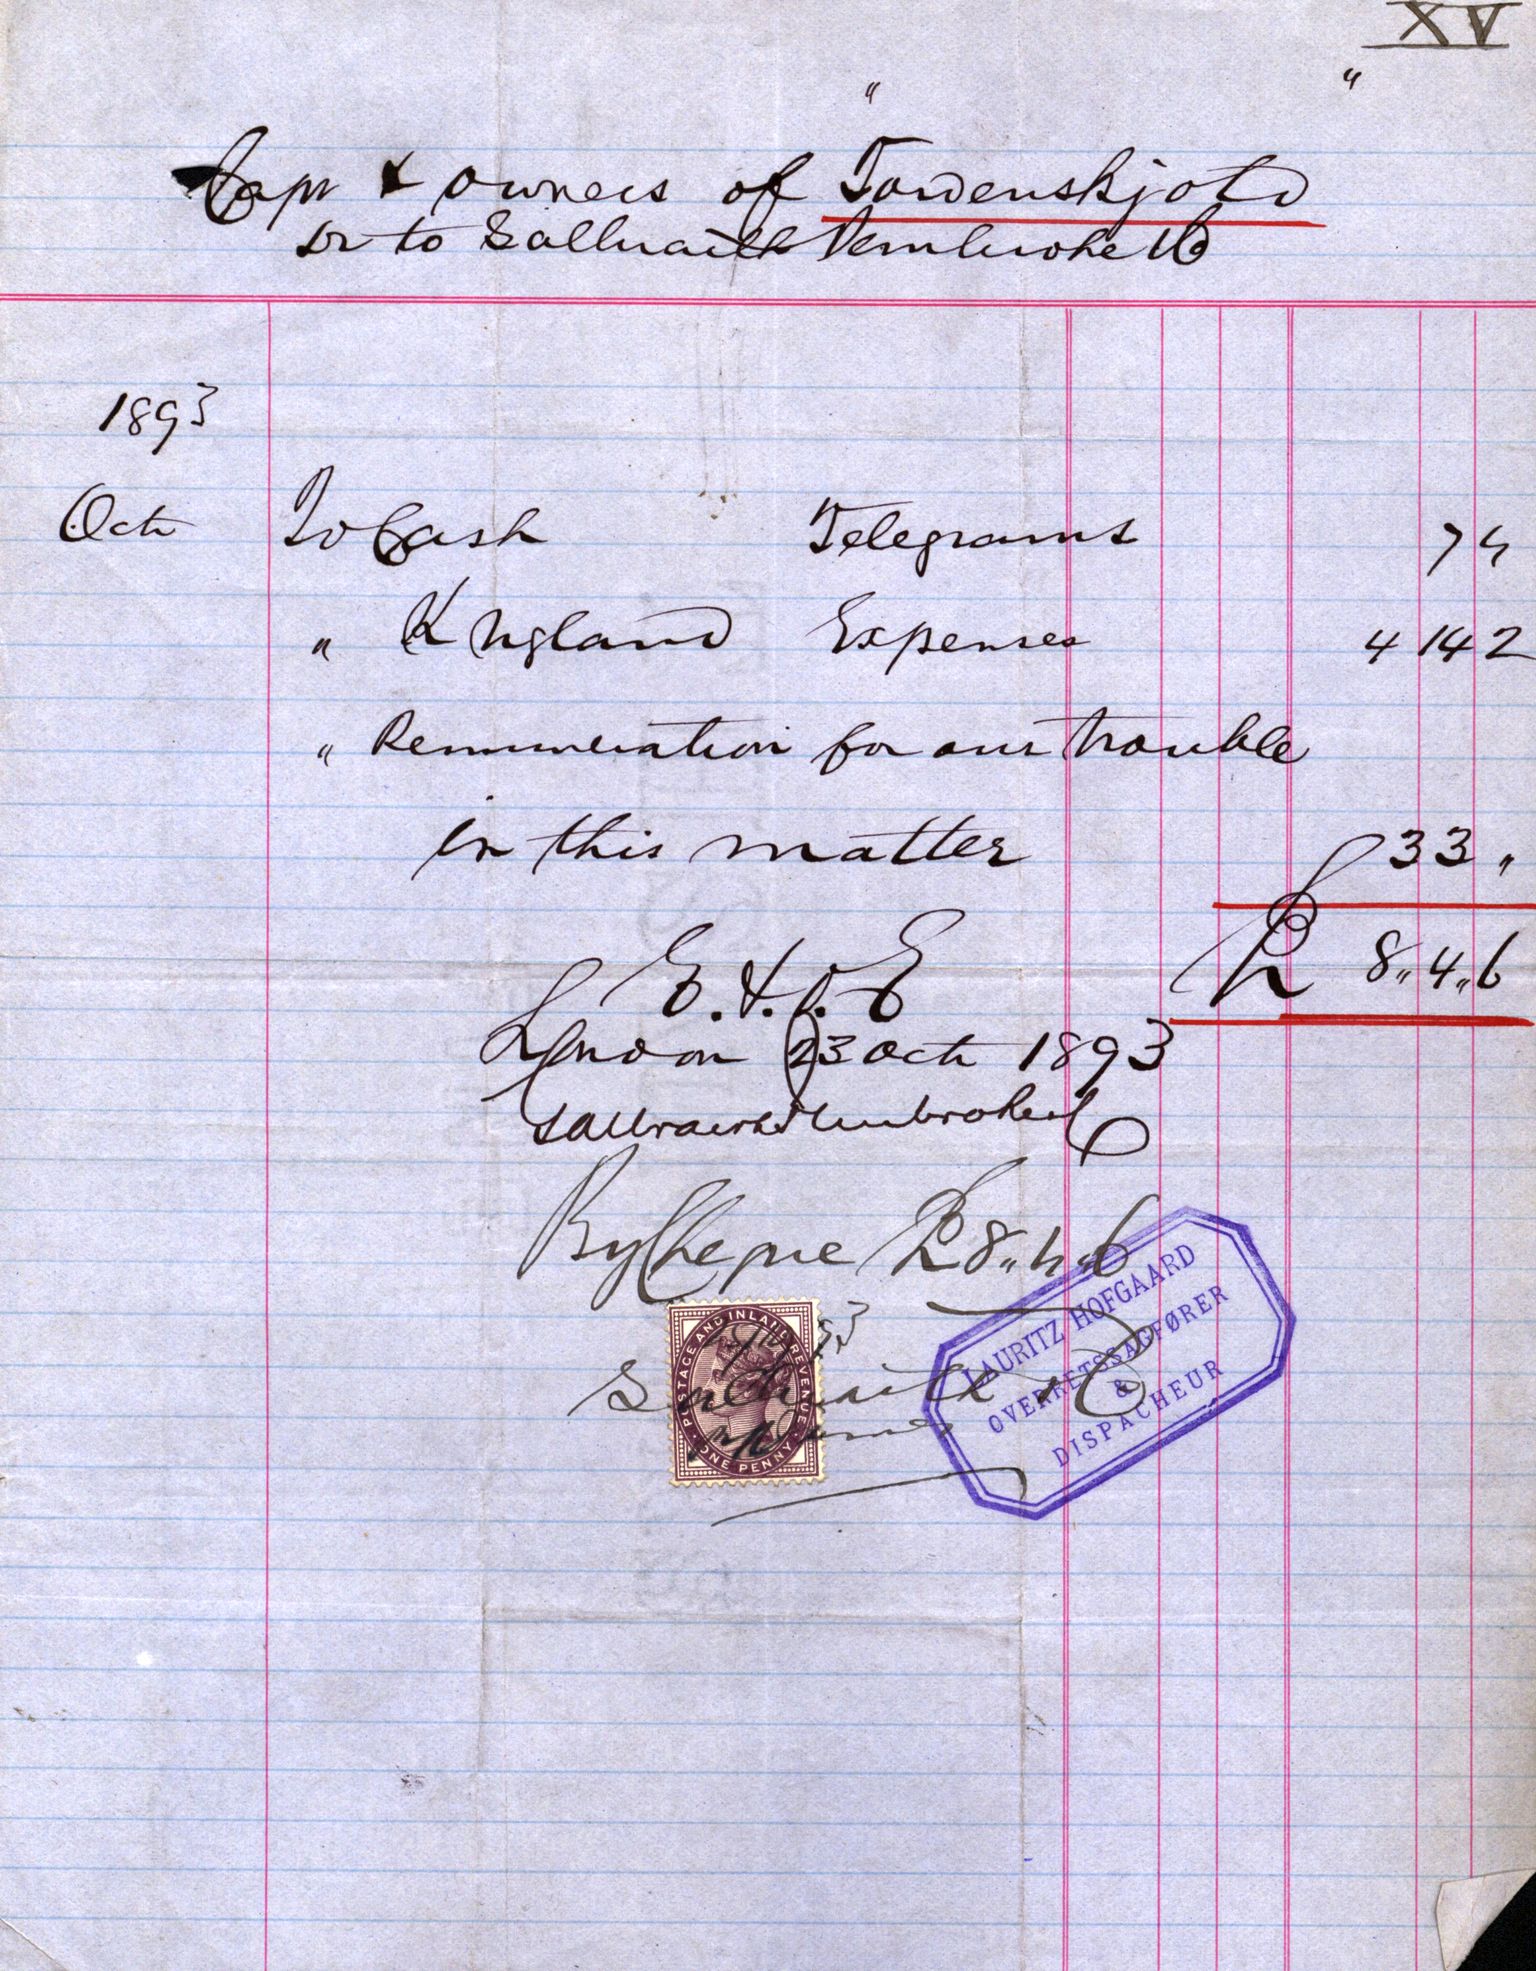 XV
" "
Capt & owners of Tordenskjold
Dr to Galbraith Pembroke & Co
1893
Oct To Cash Telegrams 7 4
" K England Expenses 4 14 2
" Remuneration for our trouble
in this matter 3 3 "
£ 8 " 4 " 6
E. & O. E
London 23 Oct 1893
Galbraith Pembroke & Co
By Cheque £ 8 " 4 " 6
93
Galbraith & Co
POSTAGE AND INLAND REVENUE
ONE PENNY
LAURITZ HOFGAARD
OVERRETSSAGFØRER
&
DISPACHEUR